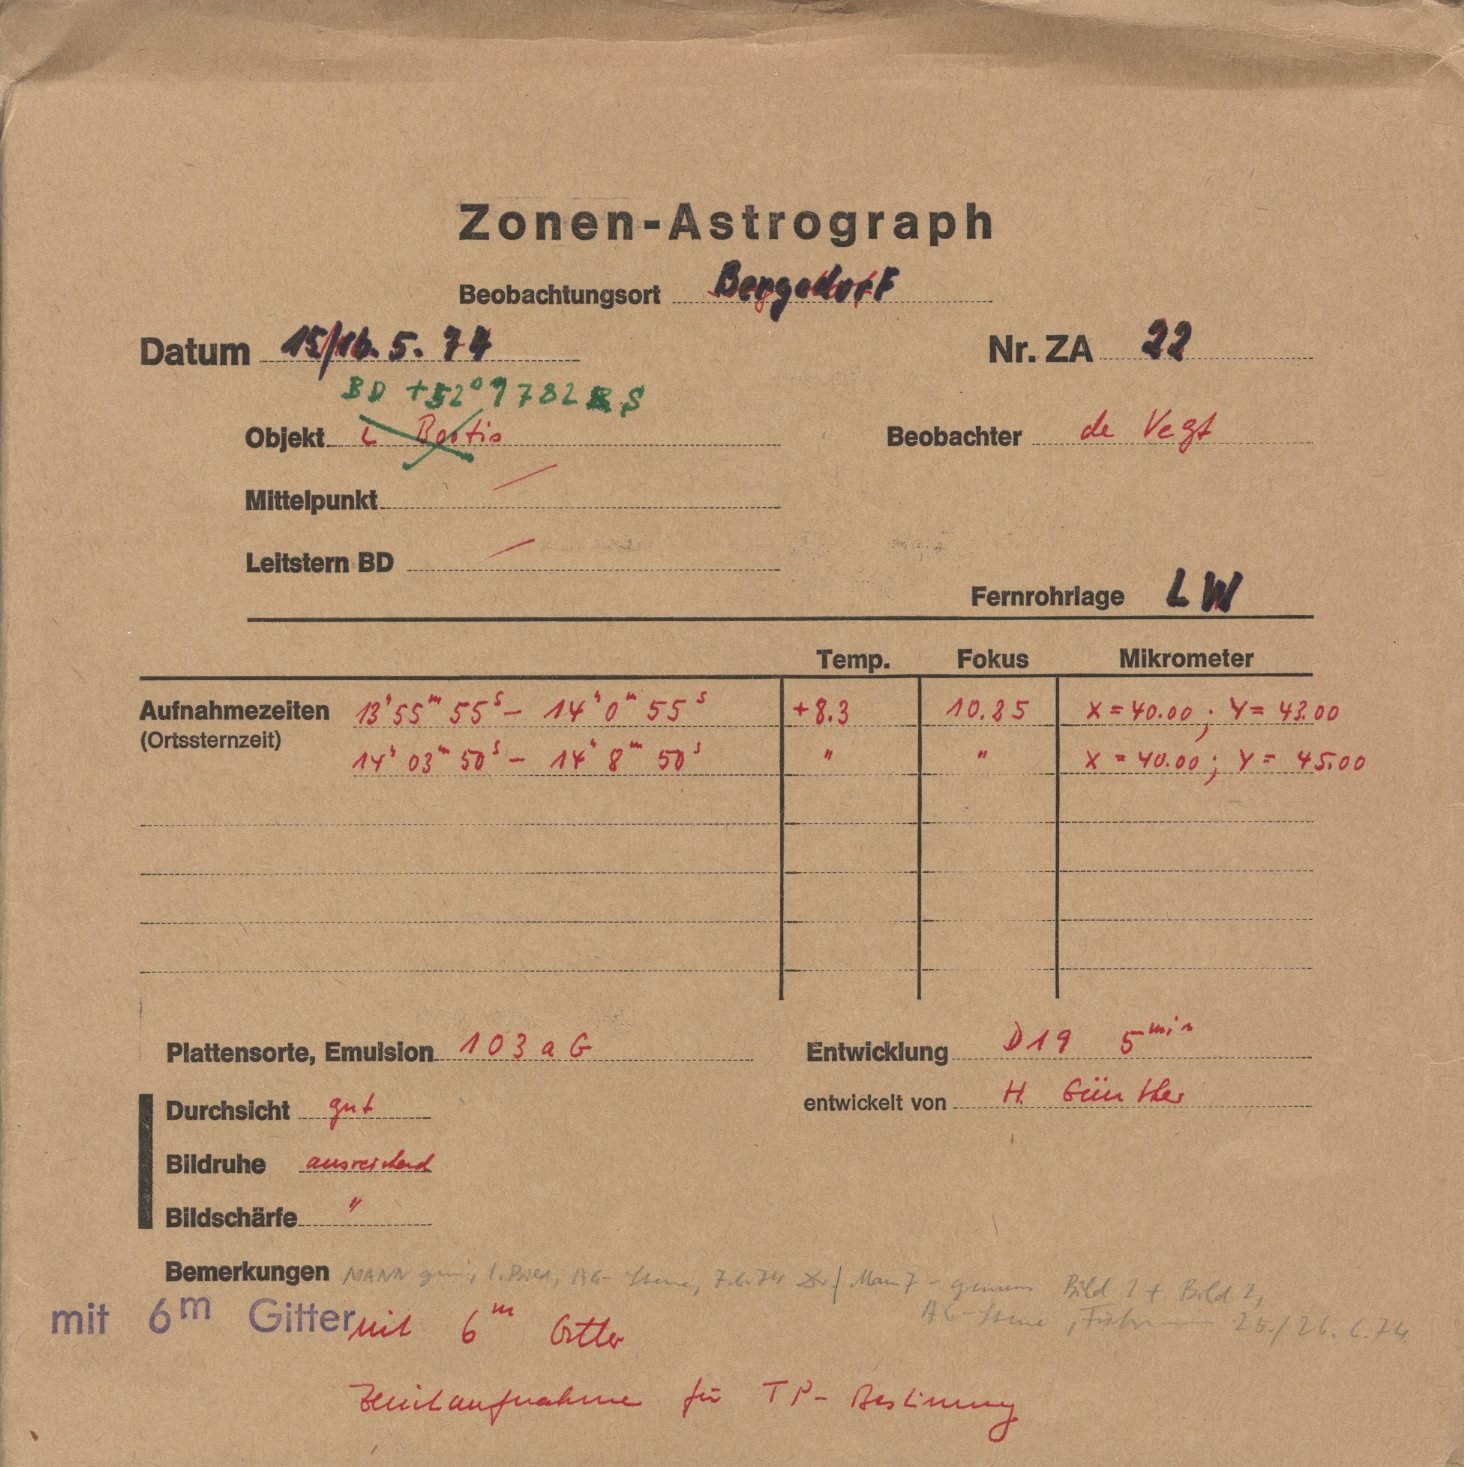 Zonen-Astrograph
Beobachtungsort Bergedorf
Datum 15/16. 5. 74 Nr. ZA 22
BD +52° 1782
Objekt ι Bootis Beobachter de Vegt
Mittelpunkt
Leitstern BD
Fernrohrlage LW
Temp. Fokus Mikrometer
Aufnahmezeiten 13h 55m 55s – 14h 0m 55s +8.3 10.25 X = 40.00 ; Y = 43.00
(Ortssternzeit)
14h 03m 50s – 14h 8m 50s " " X = 40.00 ; Y = 45.00
Plattensorte, Emulsion 103 a G Entwicklung D19 5 min
Durchsicht gut entwickelt von H. Günther
Bildruhe ausreichend
Bildschärfe "
Bemerkungen MANN AG-Sterne, 7.6.74 Bild 1 + Bild 2,
AG-Sterne, 25./26.6.74
mit 6m Gitter mit 6m Gitter
Zenitaufnahme für TP-Bestimmung